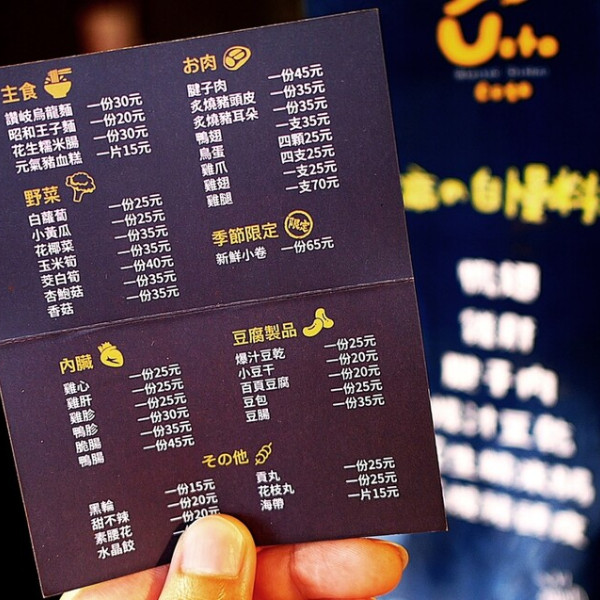 主食
讚岐烏龍麵 一份30元
昭和王子麵 一份20元
花生糯米腸 一份30元
元氣豬血糕 一片15元
お肉
腱子肉 一份45元
炙燒豬頭皮 一份35元
炙燒豬耳朵 一份35元
鴨翅 一支35元
鳥蛋 四顆25元
雞爪 四支25元
雞翅 一支25元
雞腿 一支70元
野菜
白蘿蔔 一份25元
小黃瓜 一份25元
花椰菜 一份35元
玉米筍 一份35元
茭白筍 一份40元
杏鮑菇 一份35元
香菇 一份35元
季節限定 限定
新鮮小卷 一份65元
內臟
雞心 一份25元
雞肝 一份25元
雞胗 一份25元
鴨胗 一份30元
脆腸 一份35元
鴨腸 一份45元
豆腐製品
爆汁豆乾 一份25元
小豆干 一份20元
百頁豆腐 一份20元
豆包 一份25元
豆腸 一份35元
その他
黑輪 一份15元
甜不辣 一份20元
素腰花 一份20元
水晶餃
貢丸 一份25元
花枝丸 一份25元
海帶 一片15元
の自慢料
腱子肉